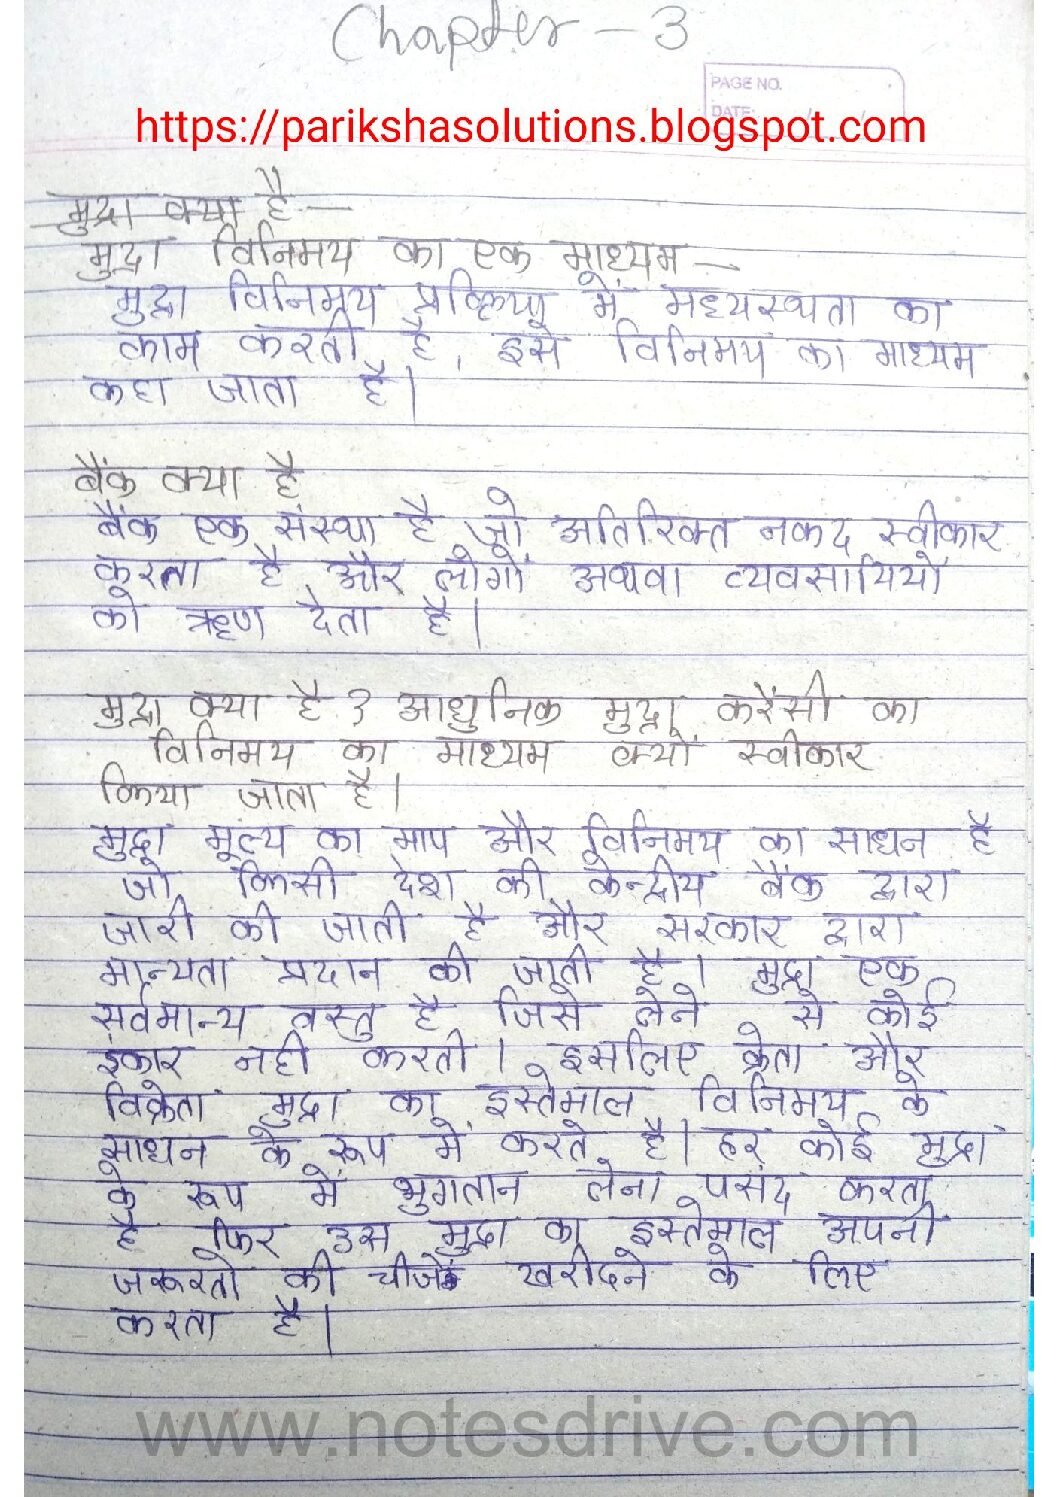 Chapter - 3
PAGE NO.
DATE: / /
https://parikshasolutions.blogspot.com
मुद्रा क्या है -
मुद्रा विनिमय का एक माध्यम -
मुद्रा विनिमय प्रक्रिया में मध्यस्थता का
काम करती है, इसे विनिमय का माध्यम
कहा जाता है।
बैंक क्या है
बैंक एक संस्था है जो अतिरिक्त नकद स्वीकार
करता है और लोगों अथवा व्यवसायियों
को ऋण देता है।
मुद्रा क्या है ? आधुनिक मुद्रा करेंसी का
विनिमय का माध्यम क्यों स्वीकार
किया जाता है।
मुद्रा मूल्य का माप और विनिमय का साधन है
जो किसी देश की केन्द्रीय बैंक द्वारा
जारी की जाती है और सरकार द्वारा
मान्यता प्रदान की जाती है। मुद्रा एक
सर्वमान्य वस्तु है जिसे लेने से कोई
इंकार नही करती। इसलिए क्रेता और
विक्रेता मुद्रा का इस्तेमाल विनिमय के
साधन के रूप में करते है। हर कोई मुद्रा
के रूप में भुगतान लेना पसंद करता
है फिर उस मुद्रा का इस्तेमाल अपनी
जरूरतो की चीजे खरीदने के लिए
करता है।
www.notesdrive.com